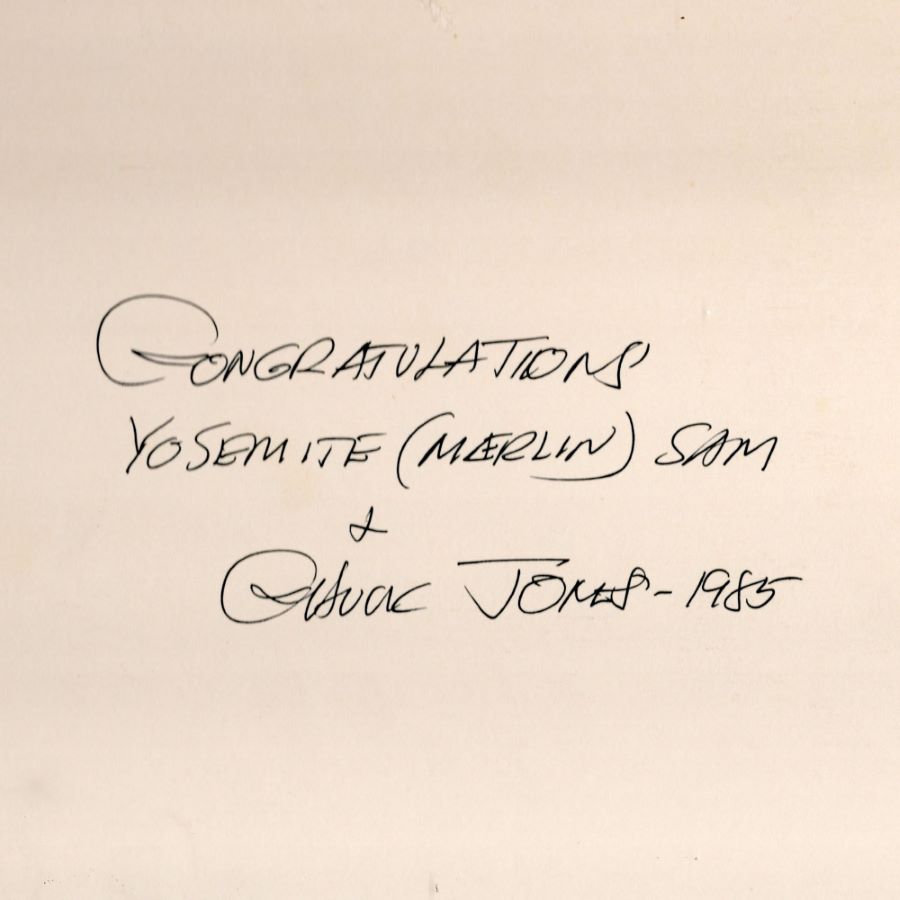 CONGRATULATIONS
YOSEMITE (MERLIN) SAM
&
CHUCK JONES - 1985